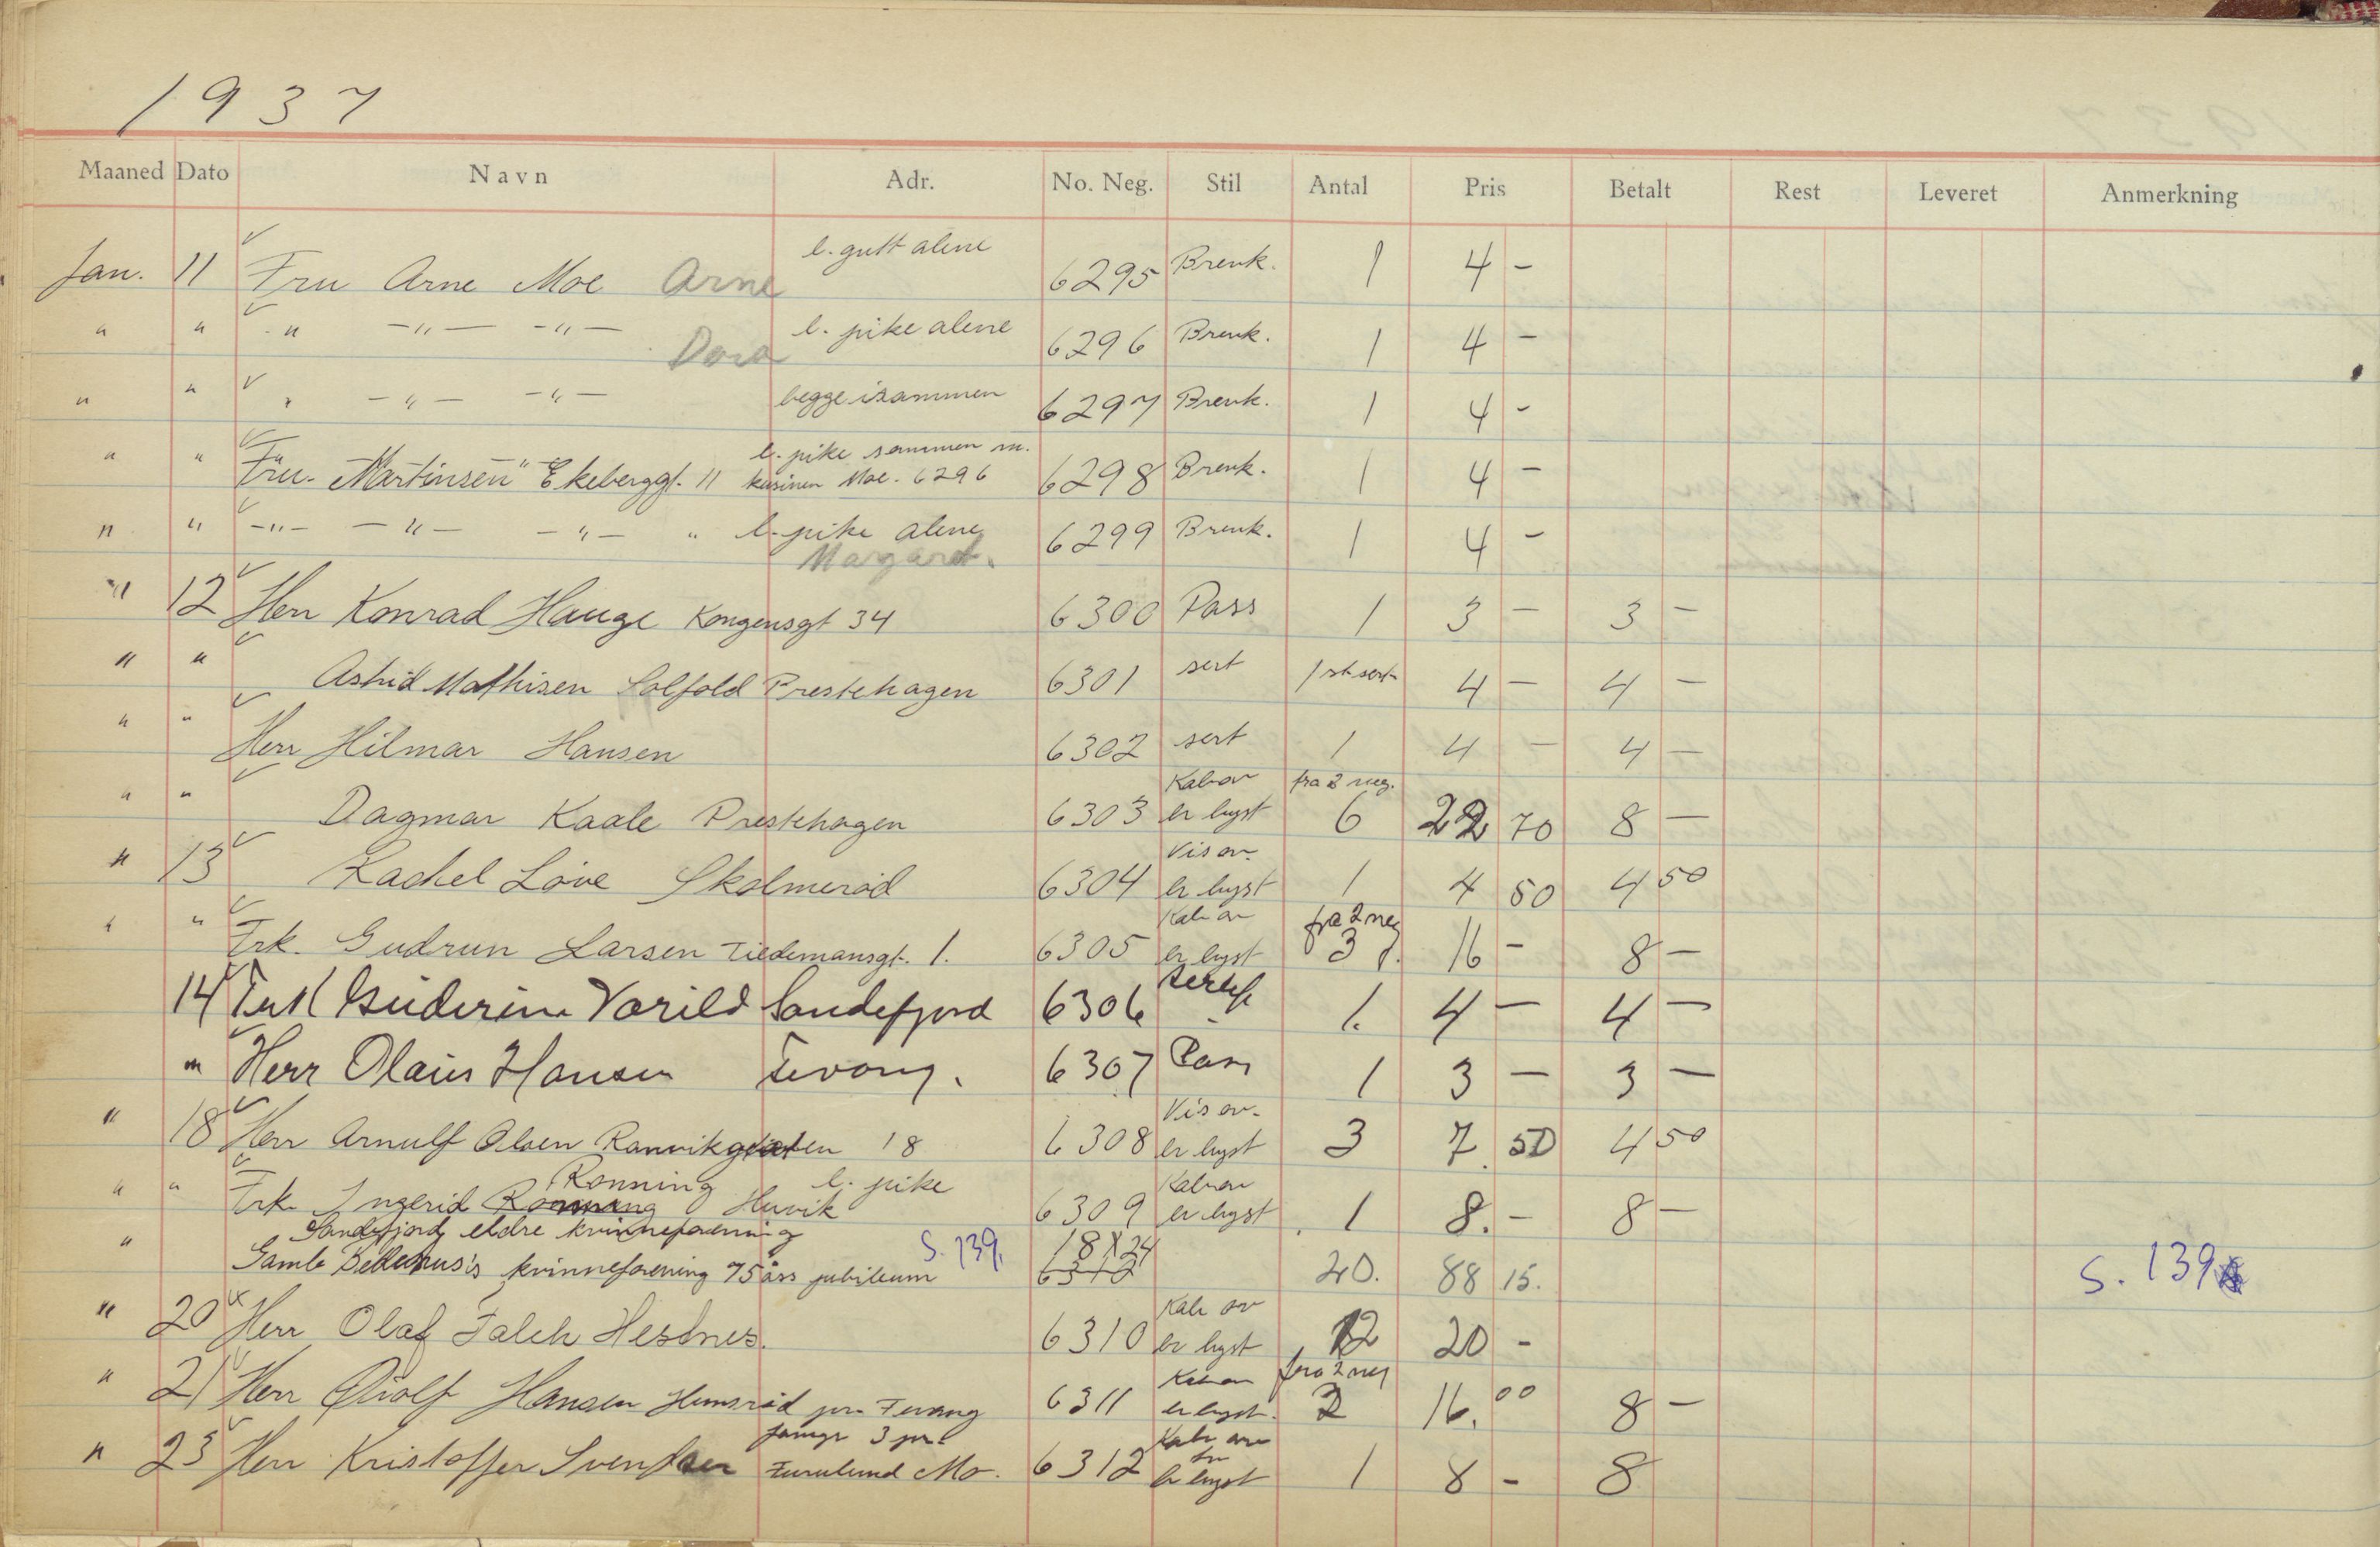 1937
Maaned Dato Navn Adr. No. Neg. Stil Antal Pris Betalt Rest Leveret Anmerkning
l. gutt alene
Jan. 11 Fru Arne Moe Arne 6295 Brenk. 1 4 -
" " " -"- -"- Dora l. pike alene 6296 Brenk. 1 4 -
" " " -"- -"- begge isammen 6297 Brenk. 1 4 -
l. pike sammen m.
" " Fru. Martinsen Ekeberggt. 11 kusinen Moe. 6296 6298 Brenk. 1 4 -
" " -"- -"- -"- " l. pike alene 6299 Brenk. 1 4 -
Margaret.
" 12 Herr Konrad Hauge Kongensgt 34 6300 Pass 1 3 - 3 -
" " Astrid Mathisen Solfold Prestehagen 6301 sert 1 st sert 4 - 4 -
" " Herr Hilmar Hansen 6302 sert 1 4 - 4 -
Kab ov fra 2 neg.
" " Dagmar Kaale Prestehagen 6303 er lyst 6 22 70 8 -
Vis ov.
" 13 Rachel Löve Skolmeröd 6304 er lyst 1 4 50 4 50
Kab ov fra 2 neg
" " Frk. Gudrun Larsen Tiedemansgt. 1. 6305 er lyst 3 16 - 8 -
14 Varild Sandefjord 6306 1. 4 - 4 -
" Herr Olaus Hansen 6307 Pass 1 3 - 3 -
Vis ov.
" 18 Herr Arnulf Olsen Ranvikgaten 18 6308 er lyst 3 7. 50 4 50
Rønning l. pike Kab ov
" " Frk. Ingerid Huvik 6309 er lyst 1 8. - 8 -
Sandefjord eldre kvinneforening
" Gamle kvinneforening 75 års jubileum S. 139. 18X24 6312 20. 88 15. S. 139
Kab ov
" 20 Herr Olaf Falch Hesdnes. 6310 er lyst 12 20 -
Kab ov fra 2 neg
" 21 Herr Hansen Hunsröd pr. Tevang 6311 er lyst. 2 16. 00 8 -
Kab ov
" 23 Herr Kristoffer Svendsen Furulund Mo. 6312 er lyst 1 8 - 8